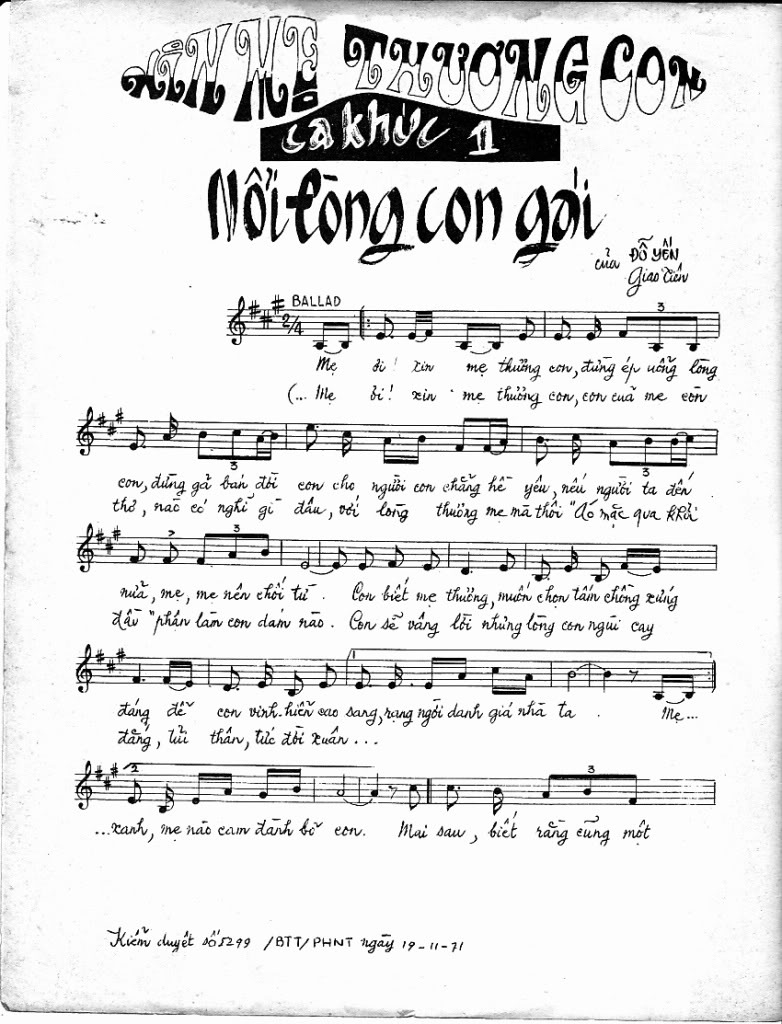 XIN MẸ THƯƠNG CON
Ca khúc 1
Nỗi lòng con gái
của ĐỖ YẾN
Giao Tiên
BALLAD
2/4
3
Mẹ ơi! xin mẹ thương con, đừng ép uổng lòng
(... Mẹ ơi! xin mẹ thương con, con cuả mẹ còn
3
3
con, đừng gả bán đời con cho người con chẳng hề yêu, nếu người ta đến
thơ, nào có nghĩ gì đâu, với lòng thương mẹ mà thôi "Áo mặc qua khỏi
3
nữa, mẹ, mẹ nên chối từ. Con biết mẹ thương, muốn chọn tấm chồng xứng
đầu" phận làm con dám nào. Con sẽ vâng lời nhưng lòng con ngùi cay
1
đáng để con vinh-hiển sao sang, rạng ngời danh giá nhà ta. Mẹ...
đắng, tủi thân, tức đời xuân...
2
3
...xanh, mẹ nào cam đành bỏ con. Mai sau, biết rằng cũng một
Kiểm duyệt số 5299 /BTT/PHNT ngày 19-11-71